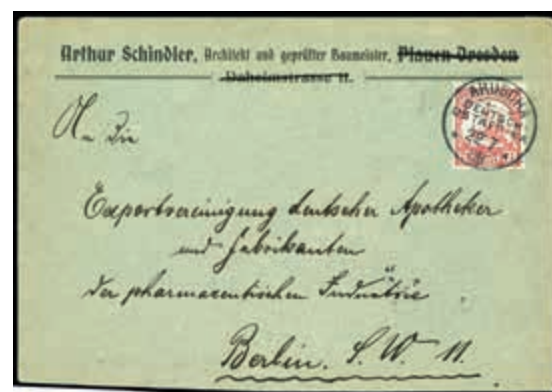 Arthur Schindler, Architekt und geprüfter Baumeister, Plauen-Dresden
Daheimstrasse 11.
ARUSCHA
DEUTSCH-
OSTAFRIKA
22 7
An Die
Exportvereinigung deutscher Apotheker
und Fabrikanten
der pharmaceutischen Industrie
Berlin. S. W. 11.